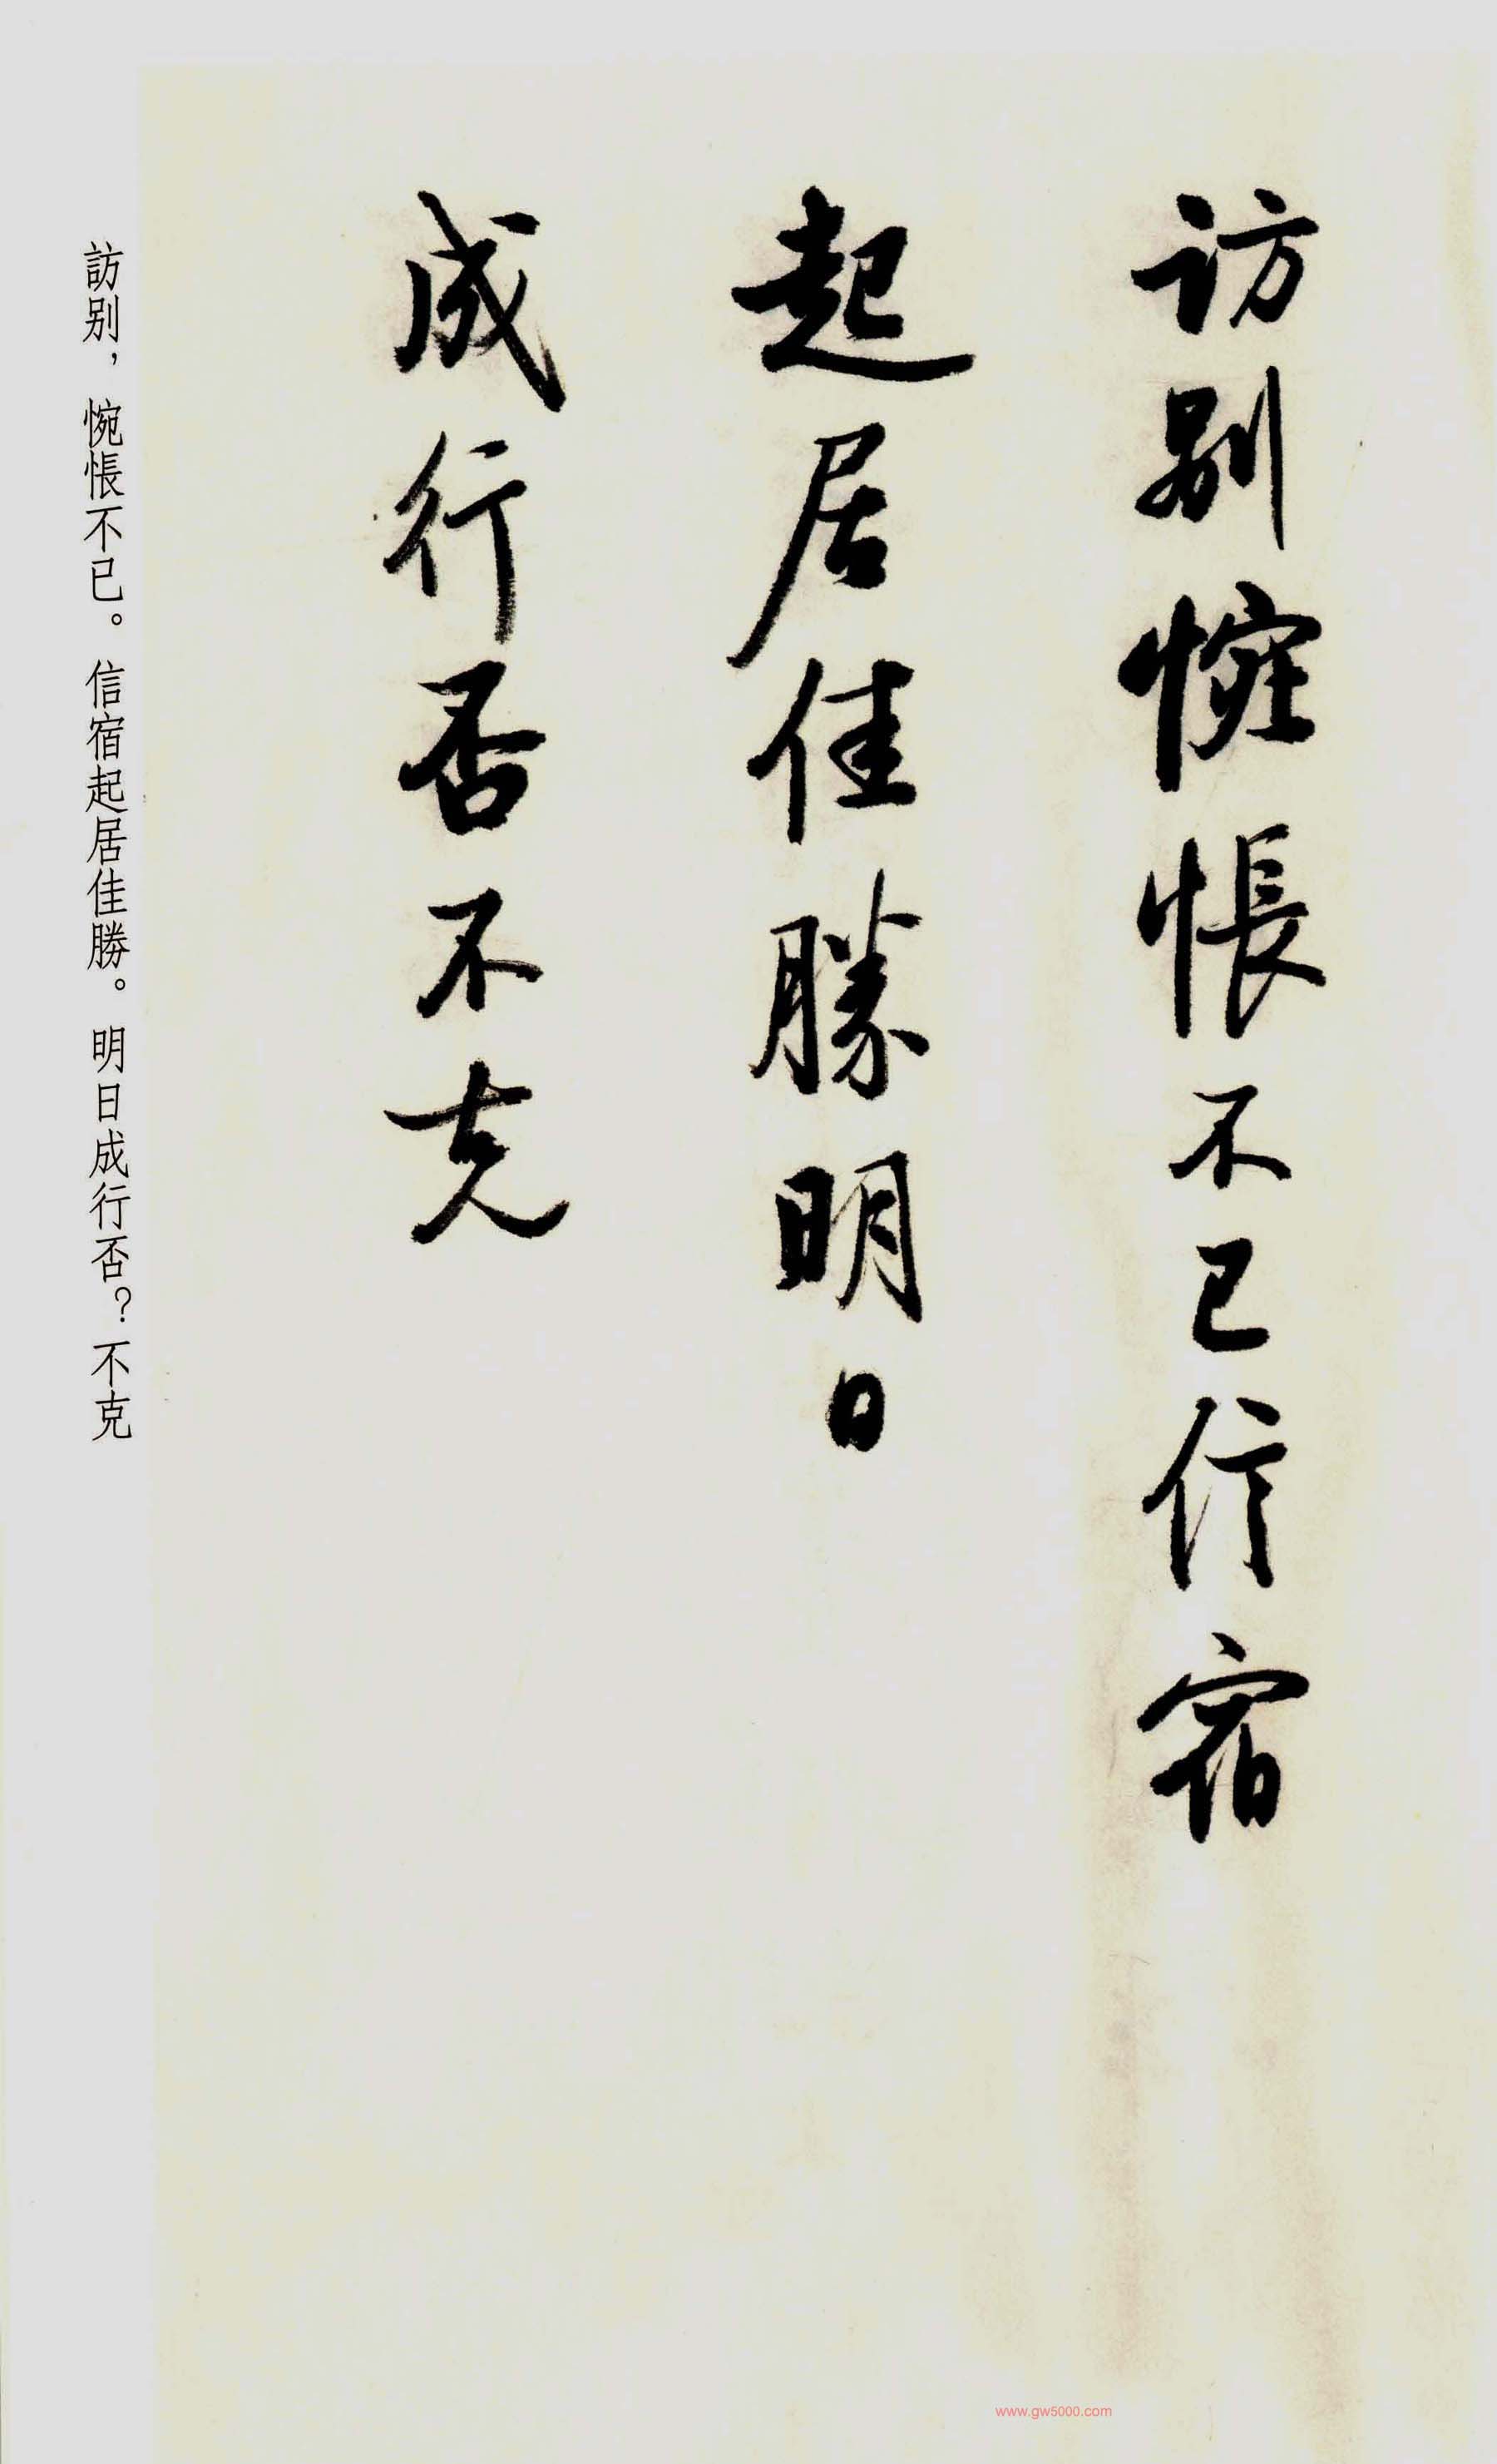 訪别惋悵不已信宿
起居佳勝明日
成行否不克
訪别，惋悵不已。信宿起居佳勝。明日成行否？不克
www.gw5000.com